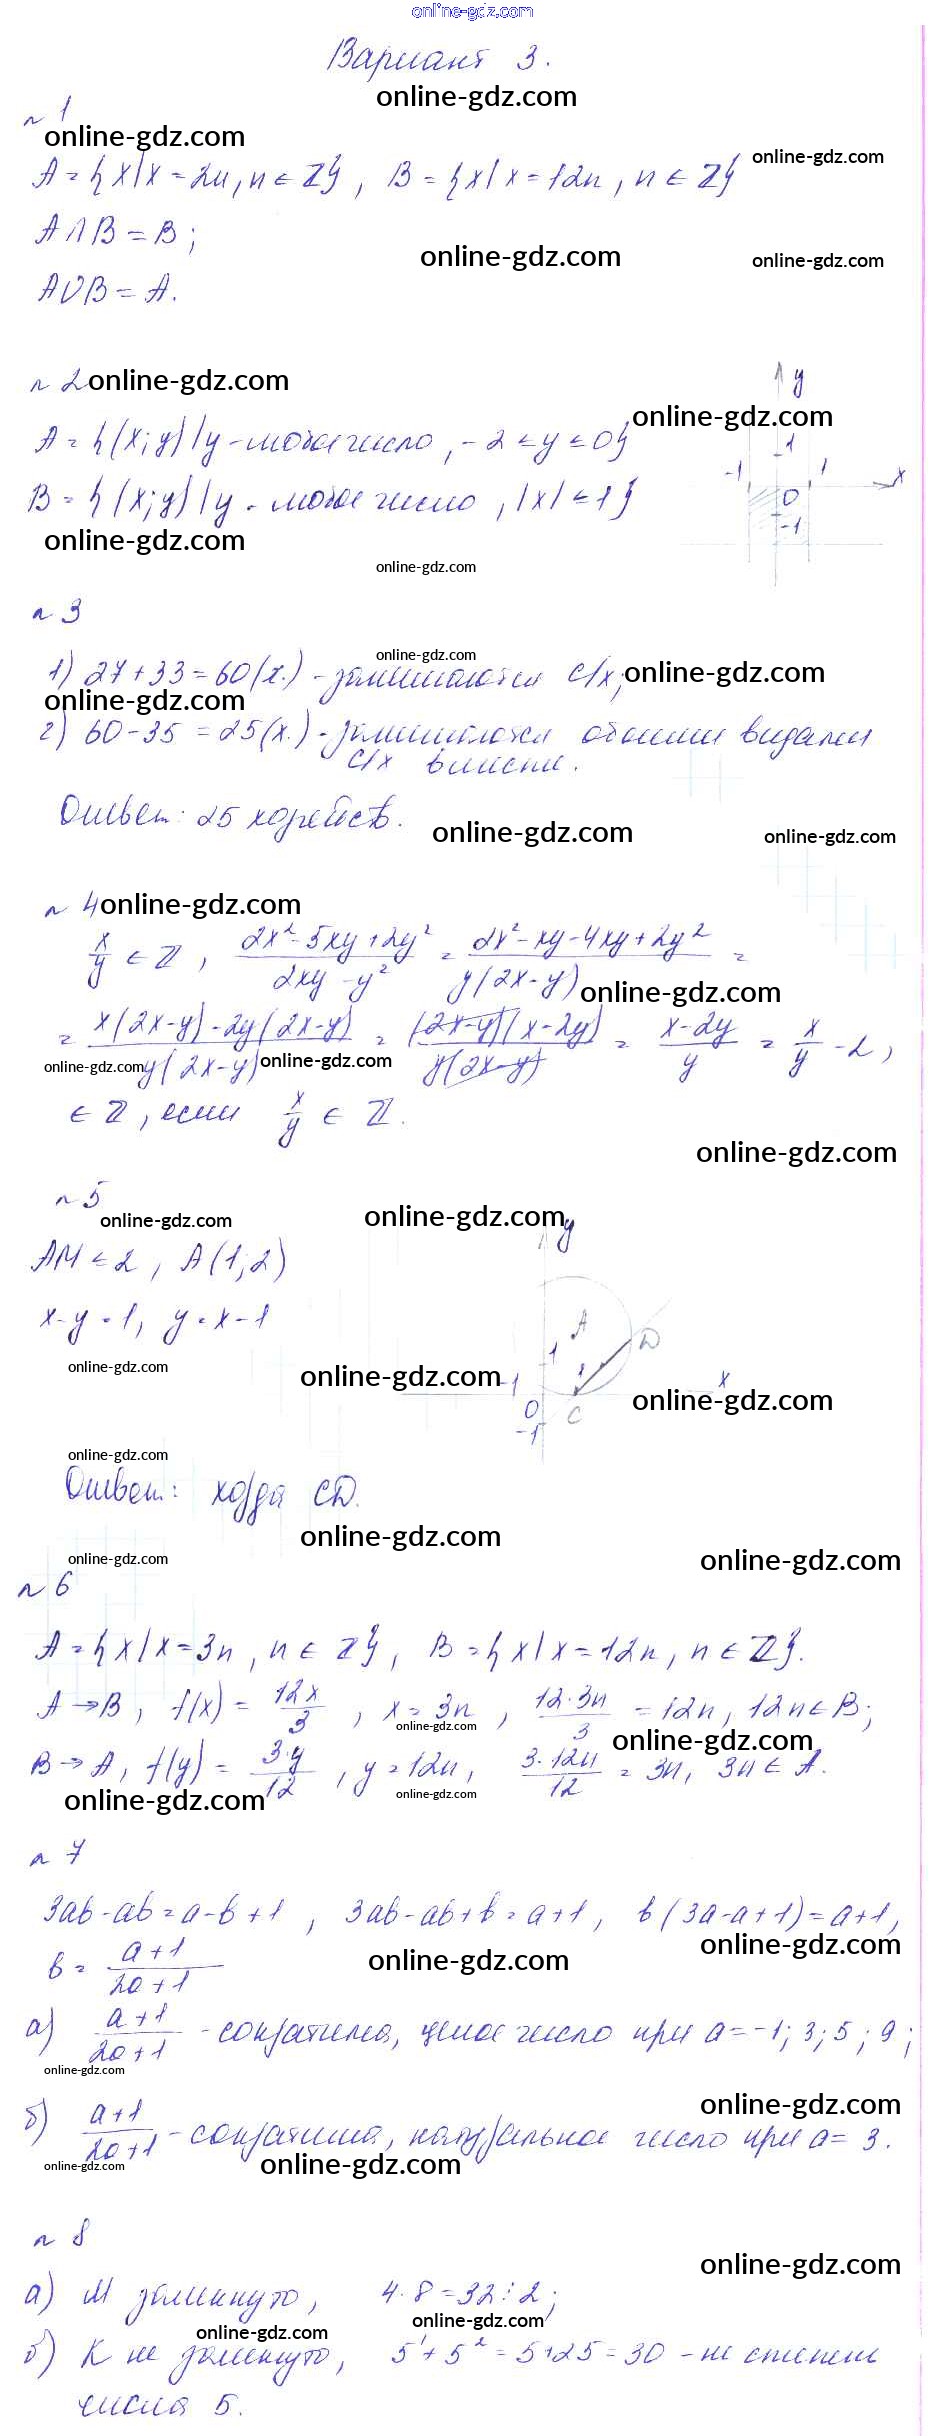 online-gdz.com
Вариант 3.
online-gdz.com
№ 1
online-gdz.com
online-gdz.com
A = {x/x = 2n, n ∈ Z}, B = {x/x = 12n, n ∈ Z}
A∩B = B;
online-gdz.com
online-gdz.com
A∪B = A.
№ 2
online-gdz.com
y
online-gdz.com
A = {(x;y)/y - любое число, -2 ≤ y ≤ 0}
1
-1 1 x
B = {(x;y)/y - любое число, |x| ≤ 1}
0
-1
online-gdz.com
online-gdz.com
№ 3
online-gdz.com
1) 27 + 33 = 60(х.) - занимаются с/х;
online-gdz.com
online-gdz.com
2) 60 - 35 = 25(х.) - занимаются обоими видами
с/х вместе.
Ответ: 25 хозяйств.
online-gdz.com
online-gdz.com
№ 4
online-gdz.com
x/y ∈ Z, (2x²-5xy+2y²)/(2xy-y²) = (2x²-xy-4xy+2y²)/(y(2x-y)) =
online-gdz.com
= (x(2x-y)-2y(2x-y))/(y(2x-y)) = ((2x-y)(x-2y))/(y(2x-y)) = (x-2y)/y = x/y - 2,
online-gdz.com
online-gdz.com
∈ Z, если x/y ∈ Z.
online-gdz.com
№ 5
online-gdz.com
online-gdz.com
y
AM = 2, A(1;2)
x-y = 1, y = x-1
A
D
1
1
online-gdz.com
online-gdz.com
-1
x
online-gdz.com
0
C
-1
online-gdz.com
Ответ: хорда CD.
online-gdz.com
online-gdz.com
online-gdz.com
№ 6
A = {x/x = 3n, n ∈ Z}, B = {x/x = 12n, n ∈ Z}.
A → B, f(x) = 12x/3, x = 3n, 12·3n/3 = 12n, 12n ∈ B;
online-gdz.com
online-gdz.com
B → A, f(y) = 3·y/12, y = 12n, 3·12n/12 = 3n, 3n ∈ A.
online-gdz.com
online-gdz.com
№ 7
3ab-ab = a-b+1, 3ab-ab+b = a+1, b(3a-a+1) = a+1,
online-gdz.com
online-gdz.com
b = (a+1)/(2a+1)
а) (a+1)/(2a+1) - сократима, целое число при a = -1; 3; 5; 9;
online-gdz.com
online-gdz.com
б) (a+1)/(2a+1) - сократима, натуральное число при a = 3.
online-gdz.com
online-gdz.com
№ 8
online-gdz.com
а) M замкнуто, 4·8 = 32⋮2;
online-gdz.com
online-gdz.com
б) K не замкнуто, 5¹+5² = 5+25 = 30 - не степень
числа 5.